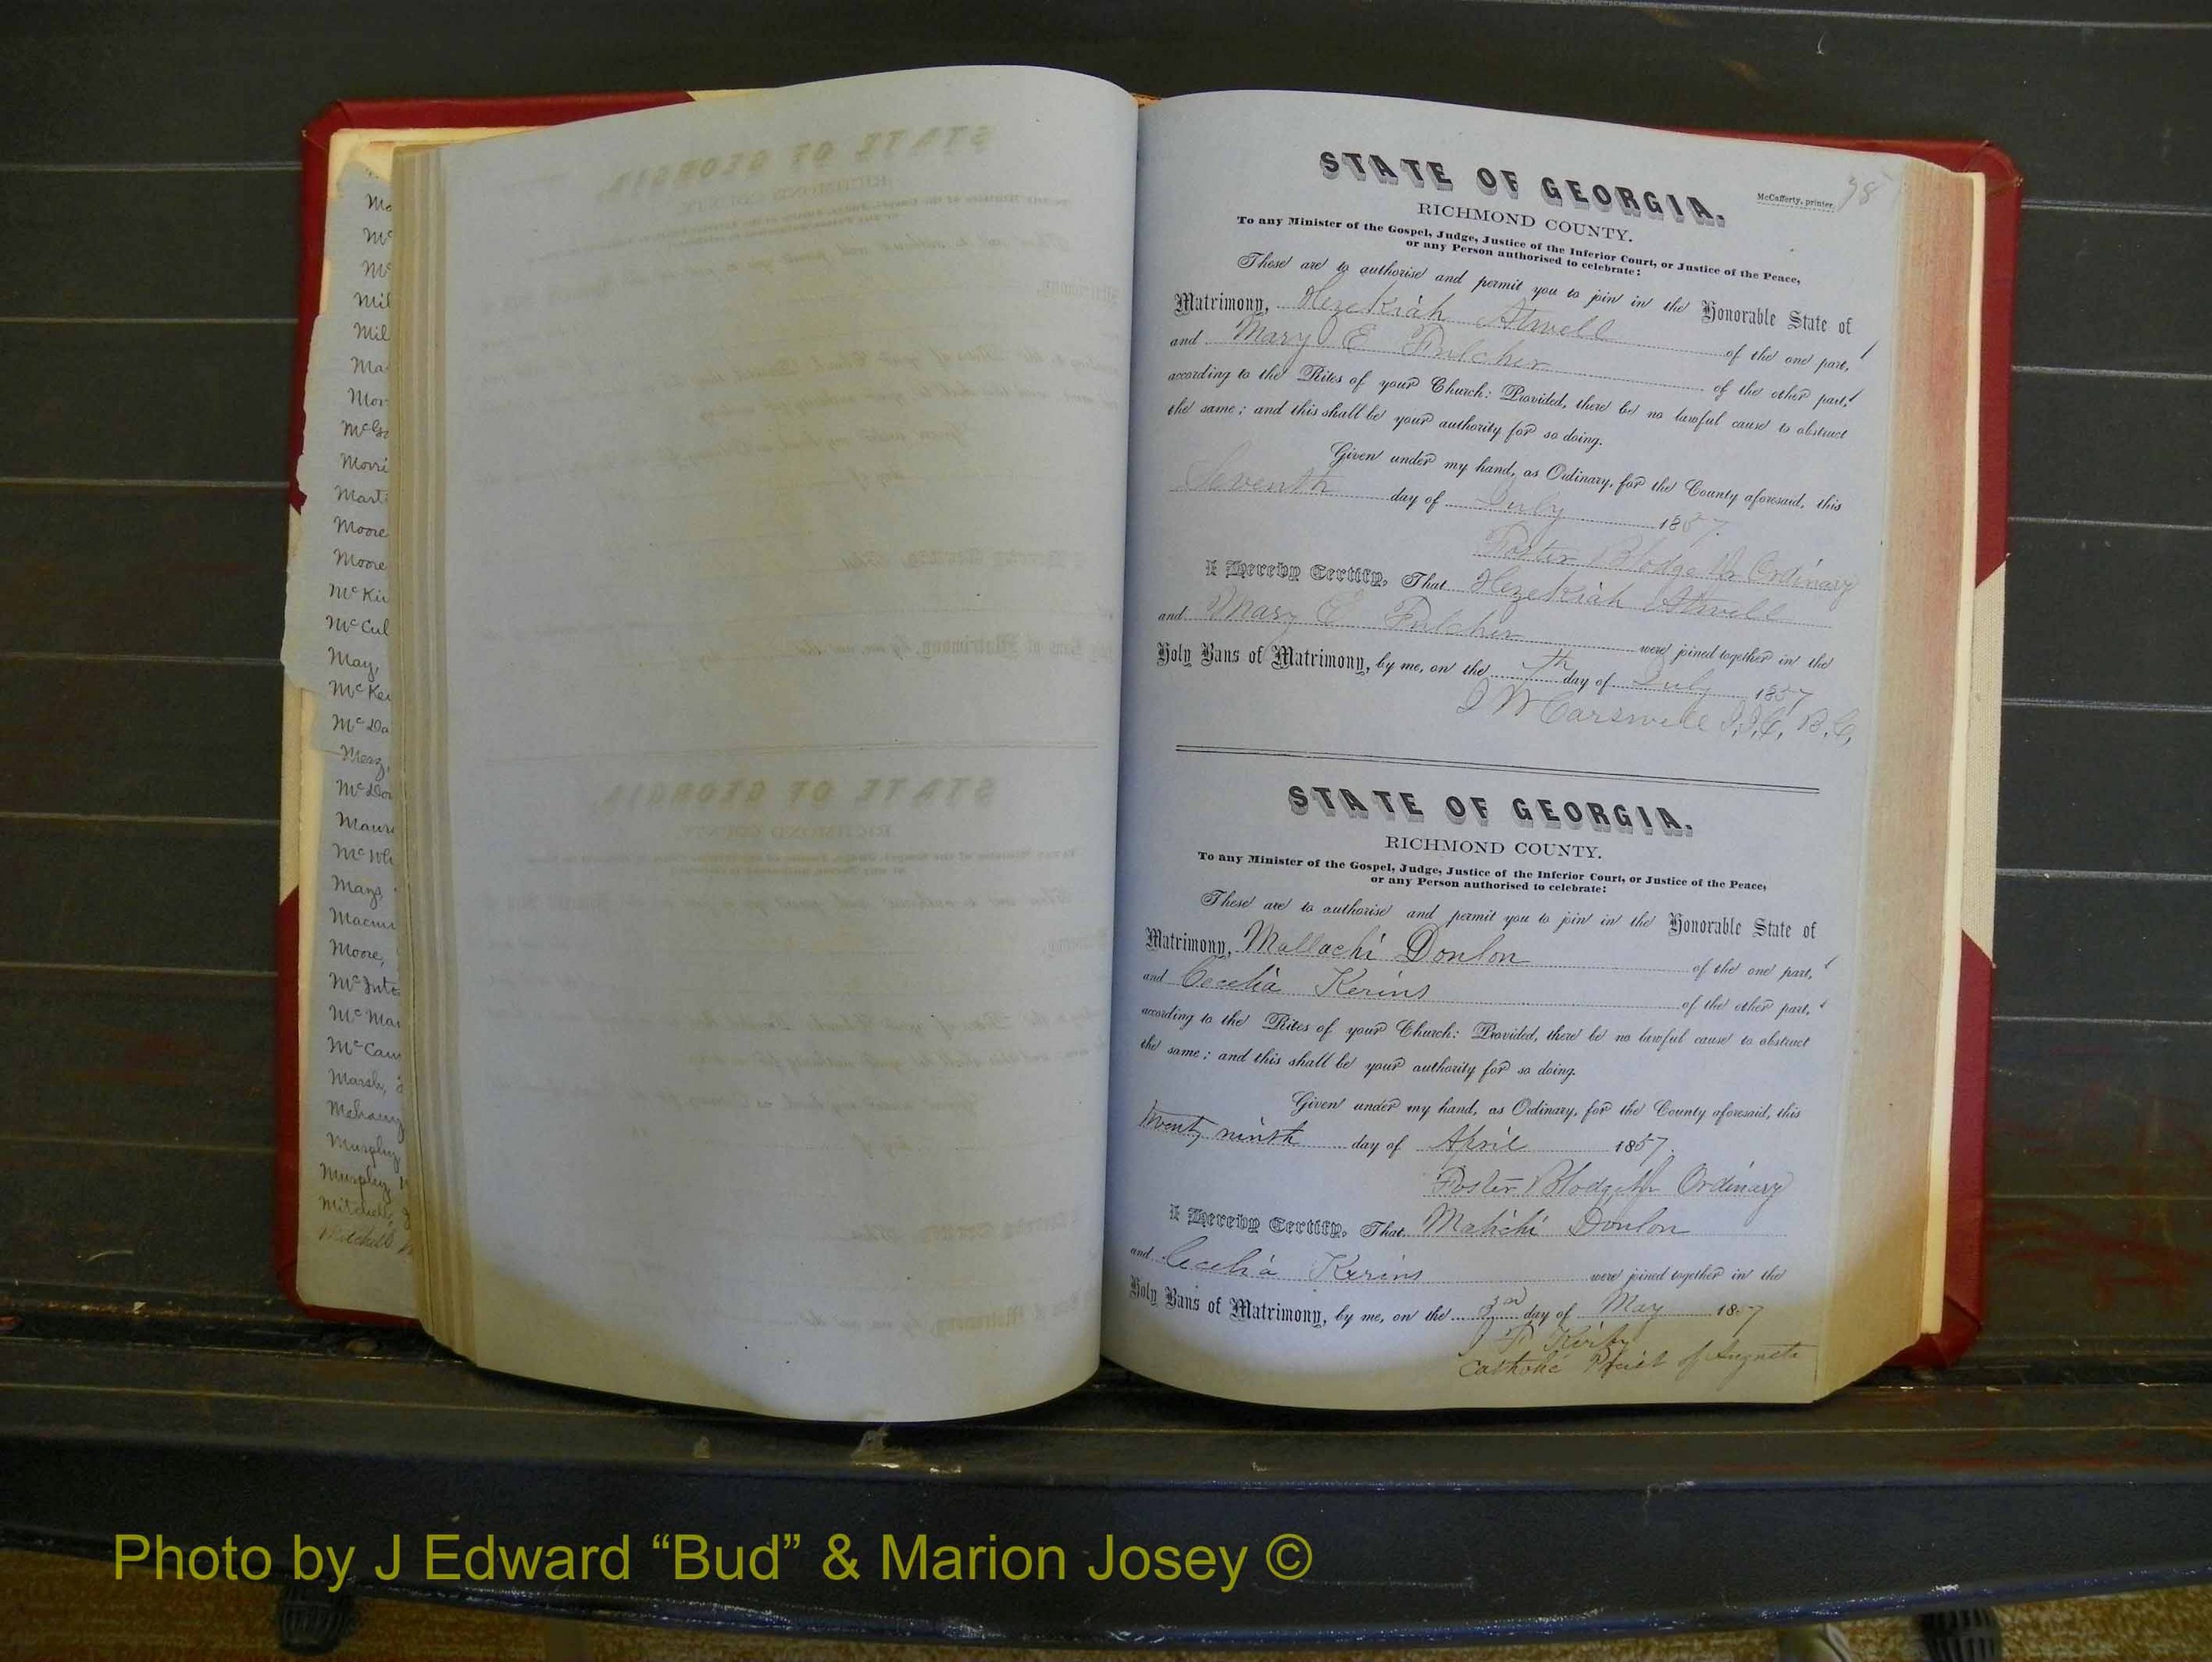 Ma
Mc
Mc
Mil
Mil
Ma
Mor
McGr
Morri
Mart
Moore
Moore
McKin
McCul
May,
McKe
McDa
Merz,
McDo
Maur
McWh
Mays
Macm
Moore,
McInt
McMa
McCan
Marsh,
Mehany
Murphy
Murphy
Mitchell,
Mitchell
38
STATE OF GEORGIA.
McCafferty, printer.
RICHMOND COUNTY.
To any Minister of the Gospel, Judge, Justice of the Inferior Court, or Justice of the Peace,
or any Person authorised to celebrate:
These are to authorise and permit you to join in the Honorable State of
Matrimony, Hezekiah Atwell of the one part,
and Mary E Fulcher of the other part,
according to the Rites of your Church: Provided, there be no lawful cause to obstruct
the same; and this shall be your authority for so doing.
Given under my hand, as Ordinary, for the County aforesaid, this
Seventh day of July 1857.
Foster Blodget Jr Ordinary
I Hereby Certify, That Hezekiah Atwell
and Mary E Fulcher were joined together in the
Holy Bans of Matrimony, by me, on the 7th day of July 1857
J W Carswell J.I.C. B.C.
STATE OF GEORGIA.
RICHMOND COUNTY.
To any Minister of the Gospel, Judge, Justice of the Inferior Court, or Justice of the Peace,
or any Person authorised to celebrate:
These are to authorise and permit you to join in the Honorable State of
Matrimony, Mallachi Donlon of the one part,
and Cecelia Kerins of the other part,
according to the Rites of your Church: Provided, there be no lawful cause to obstruct
the same; and this shall be your authority for so doing.
Given under my hand, as Ordinary, for the County aforesaid, this
Twenty ninth day of April 1857.
Foster Blodget Jr Ordinary
I Hereby Certify, That Malichi Donlon
and Cecelia Kerins were joined together in the
Holy Bans of Matrimony, by me, on the 3rd day of May 1857
Kirby
Catholic Priest of Augusta
Photo by J Edward “Bud” & Marion Josey ©